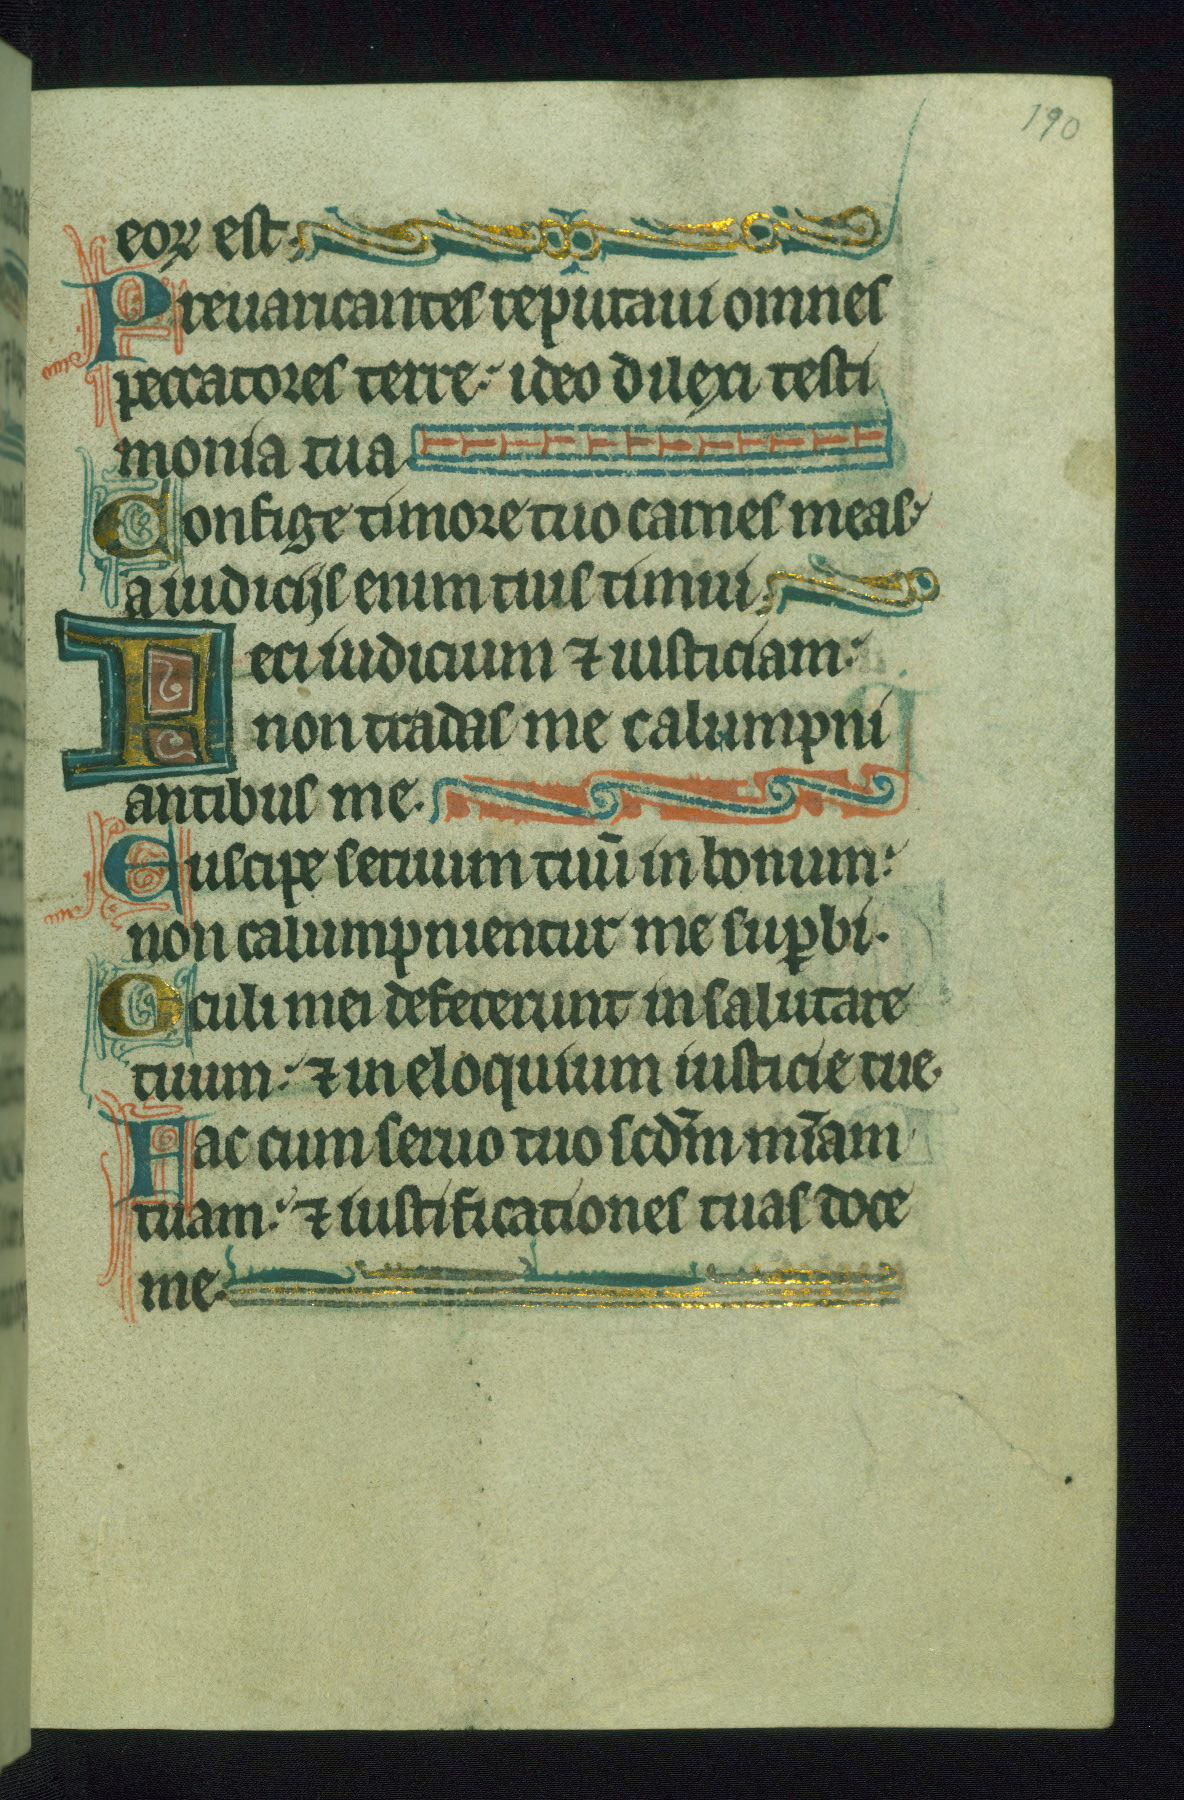 190
eoꝝ est.
Preuaricantes reputaui omnes
peccatores terre: ideo dilexi testi
monia tua
Confige timore tuo carnes meas:
a iudicijs enim tuis timui.
Feci iudicium ⁊ iusticiam:
non tradas me calumpni
antibus me.
Suscipe seruum tuū in bonum:
non calumpnientur me suꝑbi.
Oculi mei defecerunt in salutare
tuum: ⁊ in eloquium iusticie tue.
Fac cum seruo tuo scdm̄ mīam
tuam: ⁊ iustificationes tuas doce
me.